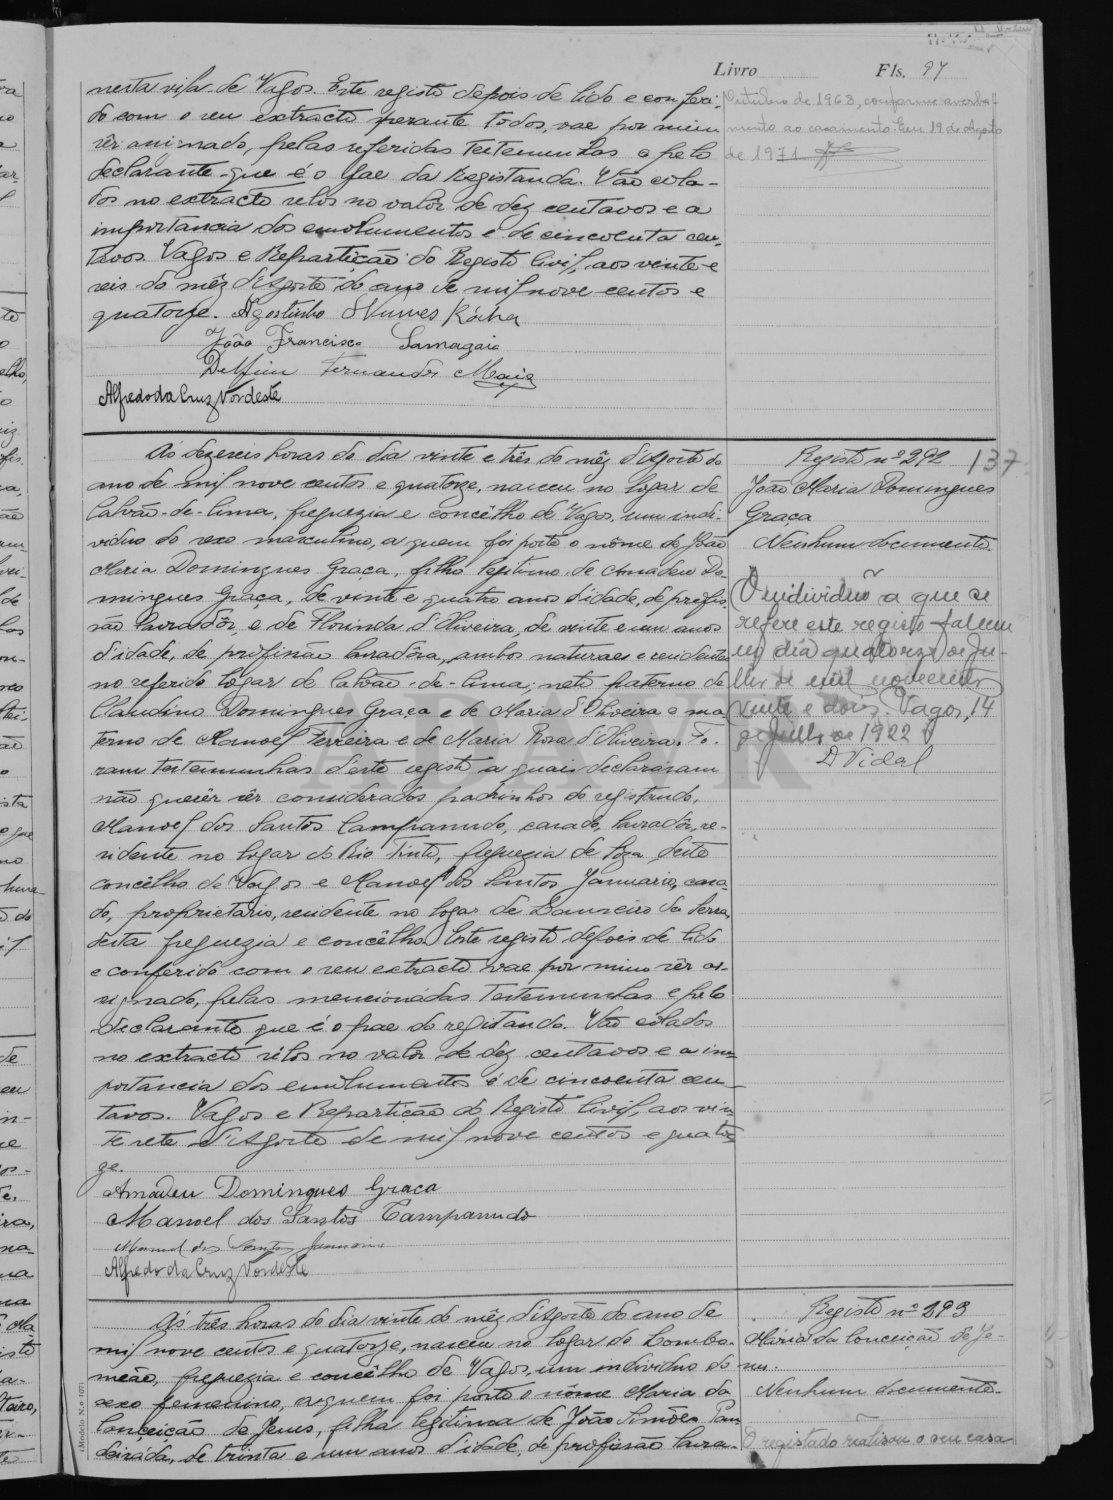 Livro Fls. 97
nesta vila de Vagos. Este registo depois de lido e conferi-
do com o seu extracto perante todos, vae por mim
sêr assinado, pelas referidas testemunhas e pelo
declarante que é o pae da Registanda. Vão cola-
dos no extracto selos no valôr de dez centavos e a
importancia dos emolumentos e de cincoenta cen-
tavos. Vagos e Repartição do Registo Civil, aos vinte e
seis do mêz d'Agosto do ano de mil nove centos e
quatorze. Agostinho Nunes Rócha
João Francisco Samagaio
Delfim Fernandes Maia
Alfredo da Cruz Nordeste
Outubro de 1963, conforme averba-
mento ao casamento. Em 19 de Agosto
de 1971
Ás dezeseis horas do dia vinte e três do mêz d'Agosto do
ano de mil nove centos e quatorze, nasceu no logar de
Calvão-de-Cima, freguezia e concêlho de Vagos, um indi-
viduo do sexo masculino, a quem foi posto o nôme de João
Maria Domingues Graça, filho legitimo de Amadeu Do-
mingues Graça, de vinte e quatro anos d'idade, de profis-
são lavradôr, e de Florinda d'Oliveira, de vinte e um anos
d'idade, de profissão lavradôra, ambos naturaes e residentes
no referido logar de Calvão-de-Cima; neto paterno de
Claudino Domingues Graça e de Maria d'Oliveira e ma-
terno de Manoel Ferreira e de Maria Rosa d'Oliveira. Fo-
ram testemunhas d'este registo as quais declararam
não querêr sêr considerados padrinhos do registando,
Manoel dos Santos Campanudo, casado, lavradôr, re-
sidente no logar do Rio Tinto, freguezia de Soza deste
concêlho de Vagos e Manoel dos Santos Januario, casa-
do, proprietario, residente no logar de da Serra,
desta freguezia e concêlho. Este registo depois de lido
e conferido com o seu extracto vae por mim sêr as-
signado, pelas mencionadas testemunhas e pelo
declarante que é o pae do registando. Vão colados
no extracto sêlos no valôr de dez centavos e a im-
portancia dos emolumentos é de cincoenta cen-
tavos. Vagos e Repartição do Registo Civil, aos vin-
te sete d'Agosto de mil nove centos e quator-
ze.
Amadeu Domingues Graça
Manoel dos Santos Campanudo
Manuel dos Santos Januario
Alfredo da Cruz Nordeste
Registo nº 292 137
João Maria Domingues
Graça
Nenhum documento.
O individuo a que se
refere este registo faleceu
no dia quatorze de Ju-
lho de mil novecentos
vinte e dois. Vagos, 14
de Julho de 1922
D Vidal
ADAVR
Ás três horas do dia vinte do mêz d'Agosto do ano de
mil nove centos e quatorze, nasceu no logar do Lombo-
meão, freguezia e concêlho de Vagos, um individuo do
sexo femenino, a quem foi posto o nôme Maria da
Conceição de Jesus, filha legitima de João Simões Pan-
deirada, de trinta e um anos d'idade, de profissão lavra-
Registo nº 293
Maria da Conceição de Je-
sus.
Nenhum documento.
O registado realisou o seu casa-
(Modelo N.º 107)